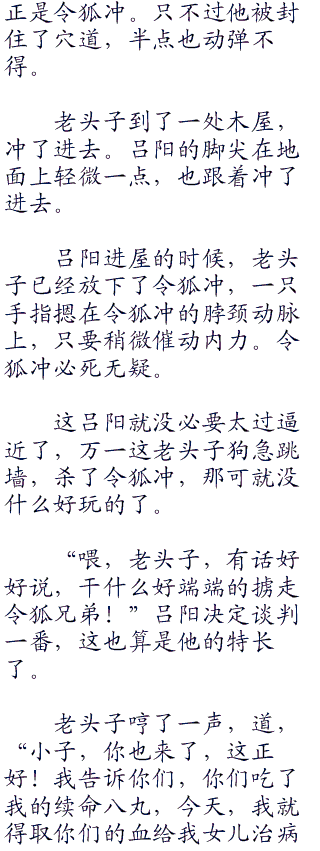 正是令狐冲。只不过他被封
住了穴道，半点也动弹不
得。
老头子到了一处木屋，
冲了进去。吕阳的脚尖在地
面上轻微一点，也跟着冲了
进去。
吕阳进屋的时候，老头
子已经放下了令狐冲，一只
手指摁在令狐冲的脖颈动脉
上，只要稍微催动内力。令
狐冲必死无疑。
这吕阳就没必要太过逼
近了，万一这老头子狗急跳
墙，杀了令狐冲，那可就没
什么好玩的了。
“喂，老头子，有话好
好说，干什么好端端的掳走
令狐兄弟！”吕阳决定谈判
一番，这也算是他的特长
了。
老头子哼了一声，道，
“小子，你也来了，这正
好！我告诉你们，你们吃了
我的续命八丸，今天，我就
得取你们的血给我女儿治病